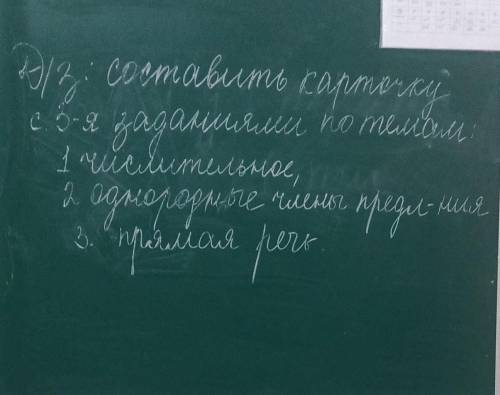 Д/з: составить карточку
с 3-я заданиями по темам:
1 числительное,
2 однородные члены предл-ния
3. прямая речь.